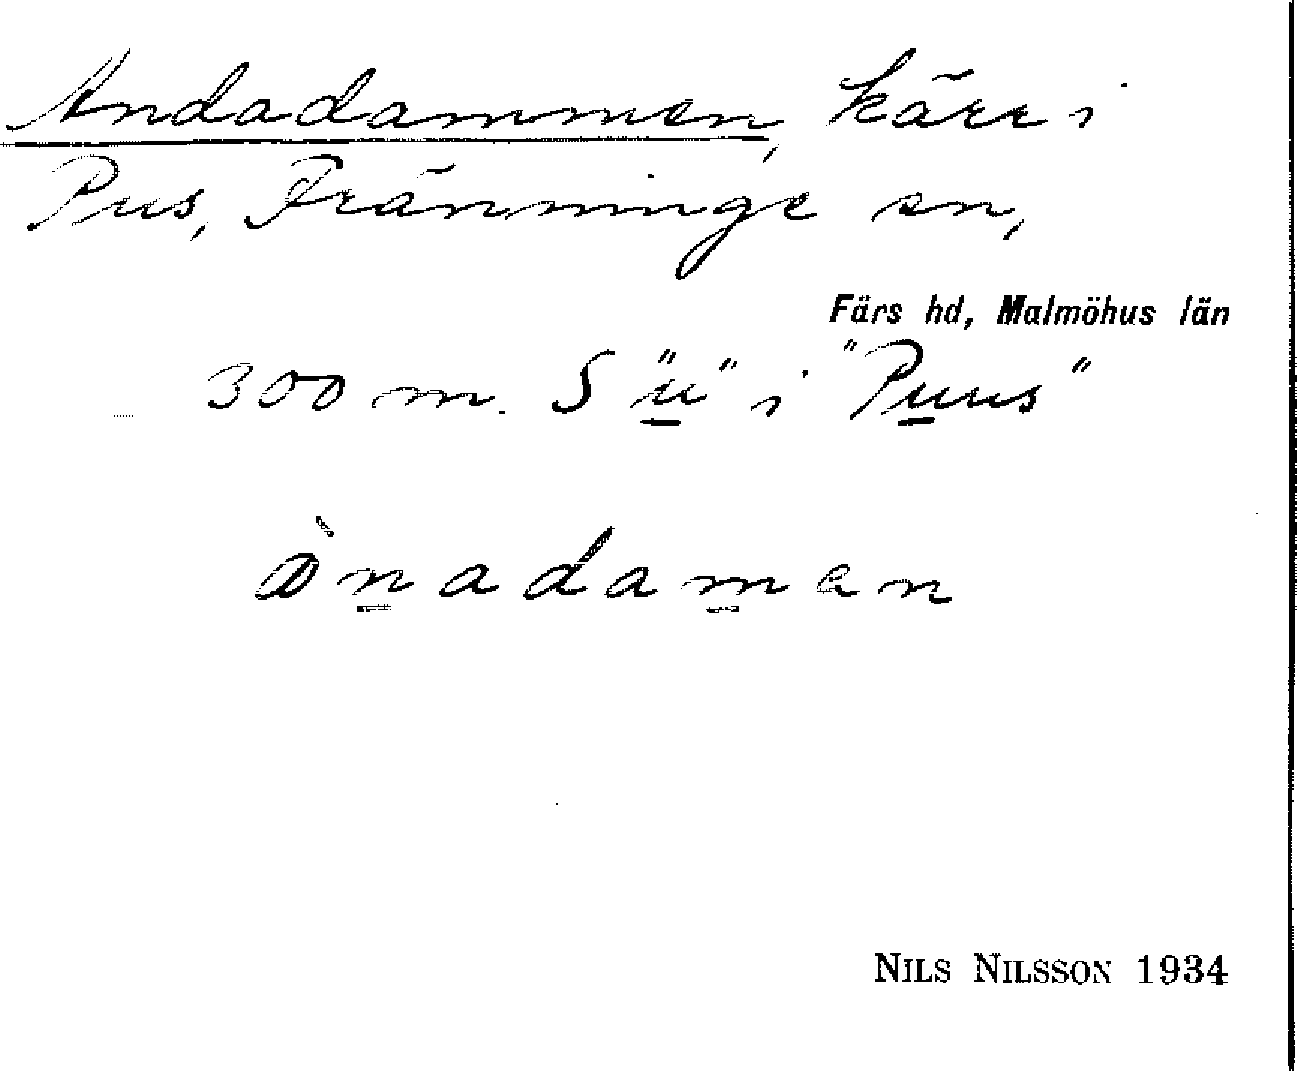 Andadammen, kärr i
Pus, Fränninge sn,
Färs hd, Malmöhus län
300 m. S "u" i "Puus"
ànadaman
NILS NILSSON 1934